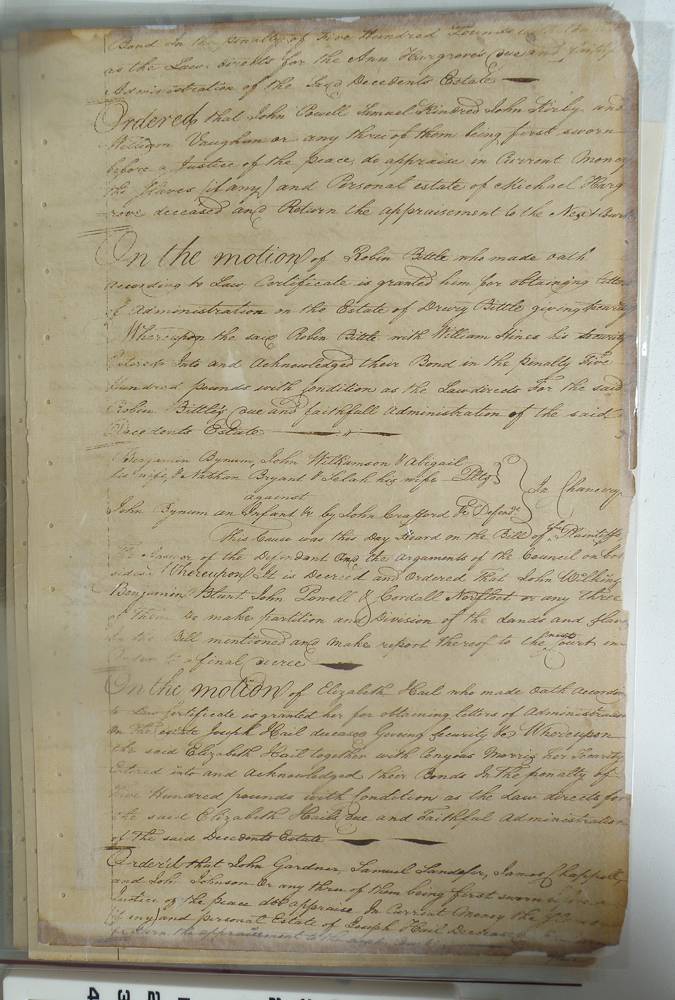 Bond in the penalty of Five Hundred Pounds with Con
as the Law directs for the Ann Hargroves due and faithfu
Administration of the Said Decedents Estate
Ordered that John Powell Lemuel Kindred John Kirby and
William Vaughan or any three of them being first sworn
before a Justice of the peace, do appraise in Current Money
the Slaves (if any) and Personal estate of Michael Harg
rove deceased and Return the appraisement to the Next Court
On the motion of Robin Bittle who made oath
According to Law, Certificate is granted him for obtaining letters
of Administration on the Estate of Drewry Bittle giving Security
Whereupon the said Robin Bittle with William Hines his Security
Entered Into and Acknowledged their Bond in the penalty Five
Hundred pounds with Condition as the Law directs For the said
Robin Bittle's due and faithfull Administration of the said
Decedents Estate
Benjamin Bynum, John Wilkamson & Abigail
his wife, & Nathan Bryant & Selah his wife Plts
against
John Bynum an Infant &c by John Crafford &c Defendt
In Chancery
This Cause was this Day Heard on the Bill of ye Plaintiffs
The Answer of the Defendant and the arguments of the Council on both
sides Whereupon It is Decreed and Ordered That John Wilkins
Benjamin Blunt John Powell & Cordall Norfleet or any three
of them do make partition and Division of the Lands and Slaves
In the Bill mentioned and make report thereof to the next Court in
Order to a final decree
On the motion of Elizabeth Hail who made Oath According
to Law Certificate is granted her for obtaining letters of Administration
on the estate Joseph Hail deceased Giving Security &c Whereupon
the said Elizabeth Hail together with Conyous Morris her Security
Entered into and Acknowledged their Bonds In the penalty of
Five Hundred pounds with Condition as the Law directs for
the said Elizabeth Hails due and faithful Administration
of The said Decedents Estate
Ordered that John Gardner, Samuel Sandefer, James Chappell
and John Johnson or any three of them being first sworn before a
Justice of the peace do appraise In Current Money the Slaves
(if any) and personal Estate of Joseph Hail Deceased
Return the appraisement to the next